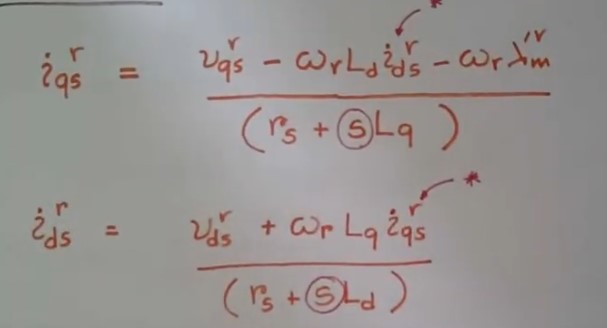 *
i_{qs}^{r} = \frac{v_{qs}^{r} - ω_r L_d i_{ds}^{r} - ω_r λ_m^{'r}}{(r_s + ⓢ L_q)}
*
i_{ds}^{r} = \frac{v_{ds}^{r} + ω_r L_q i_{qs}^{r}}{(r_s + ⓢ L_d)}